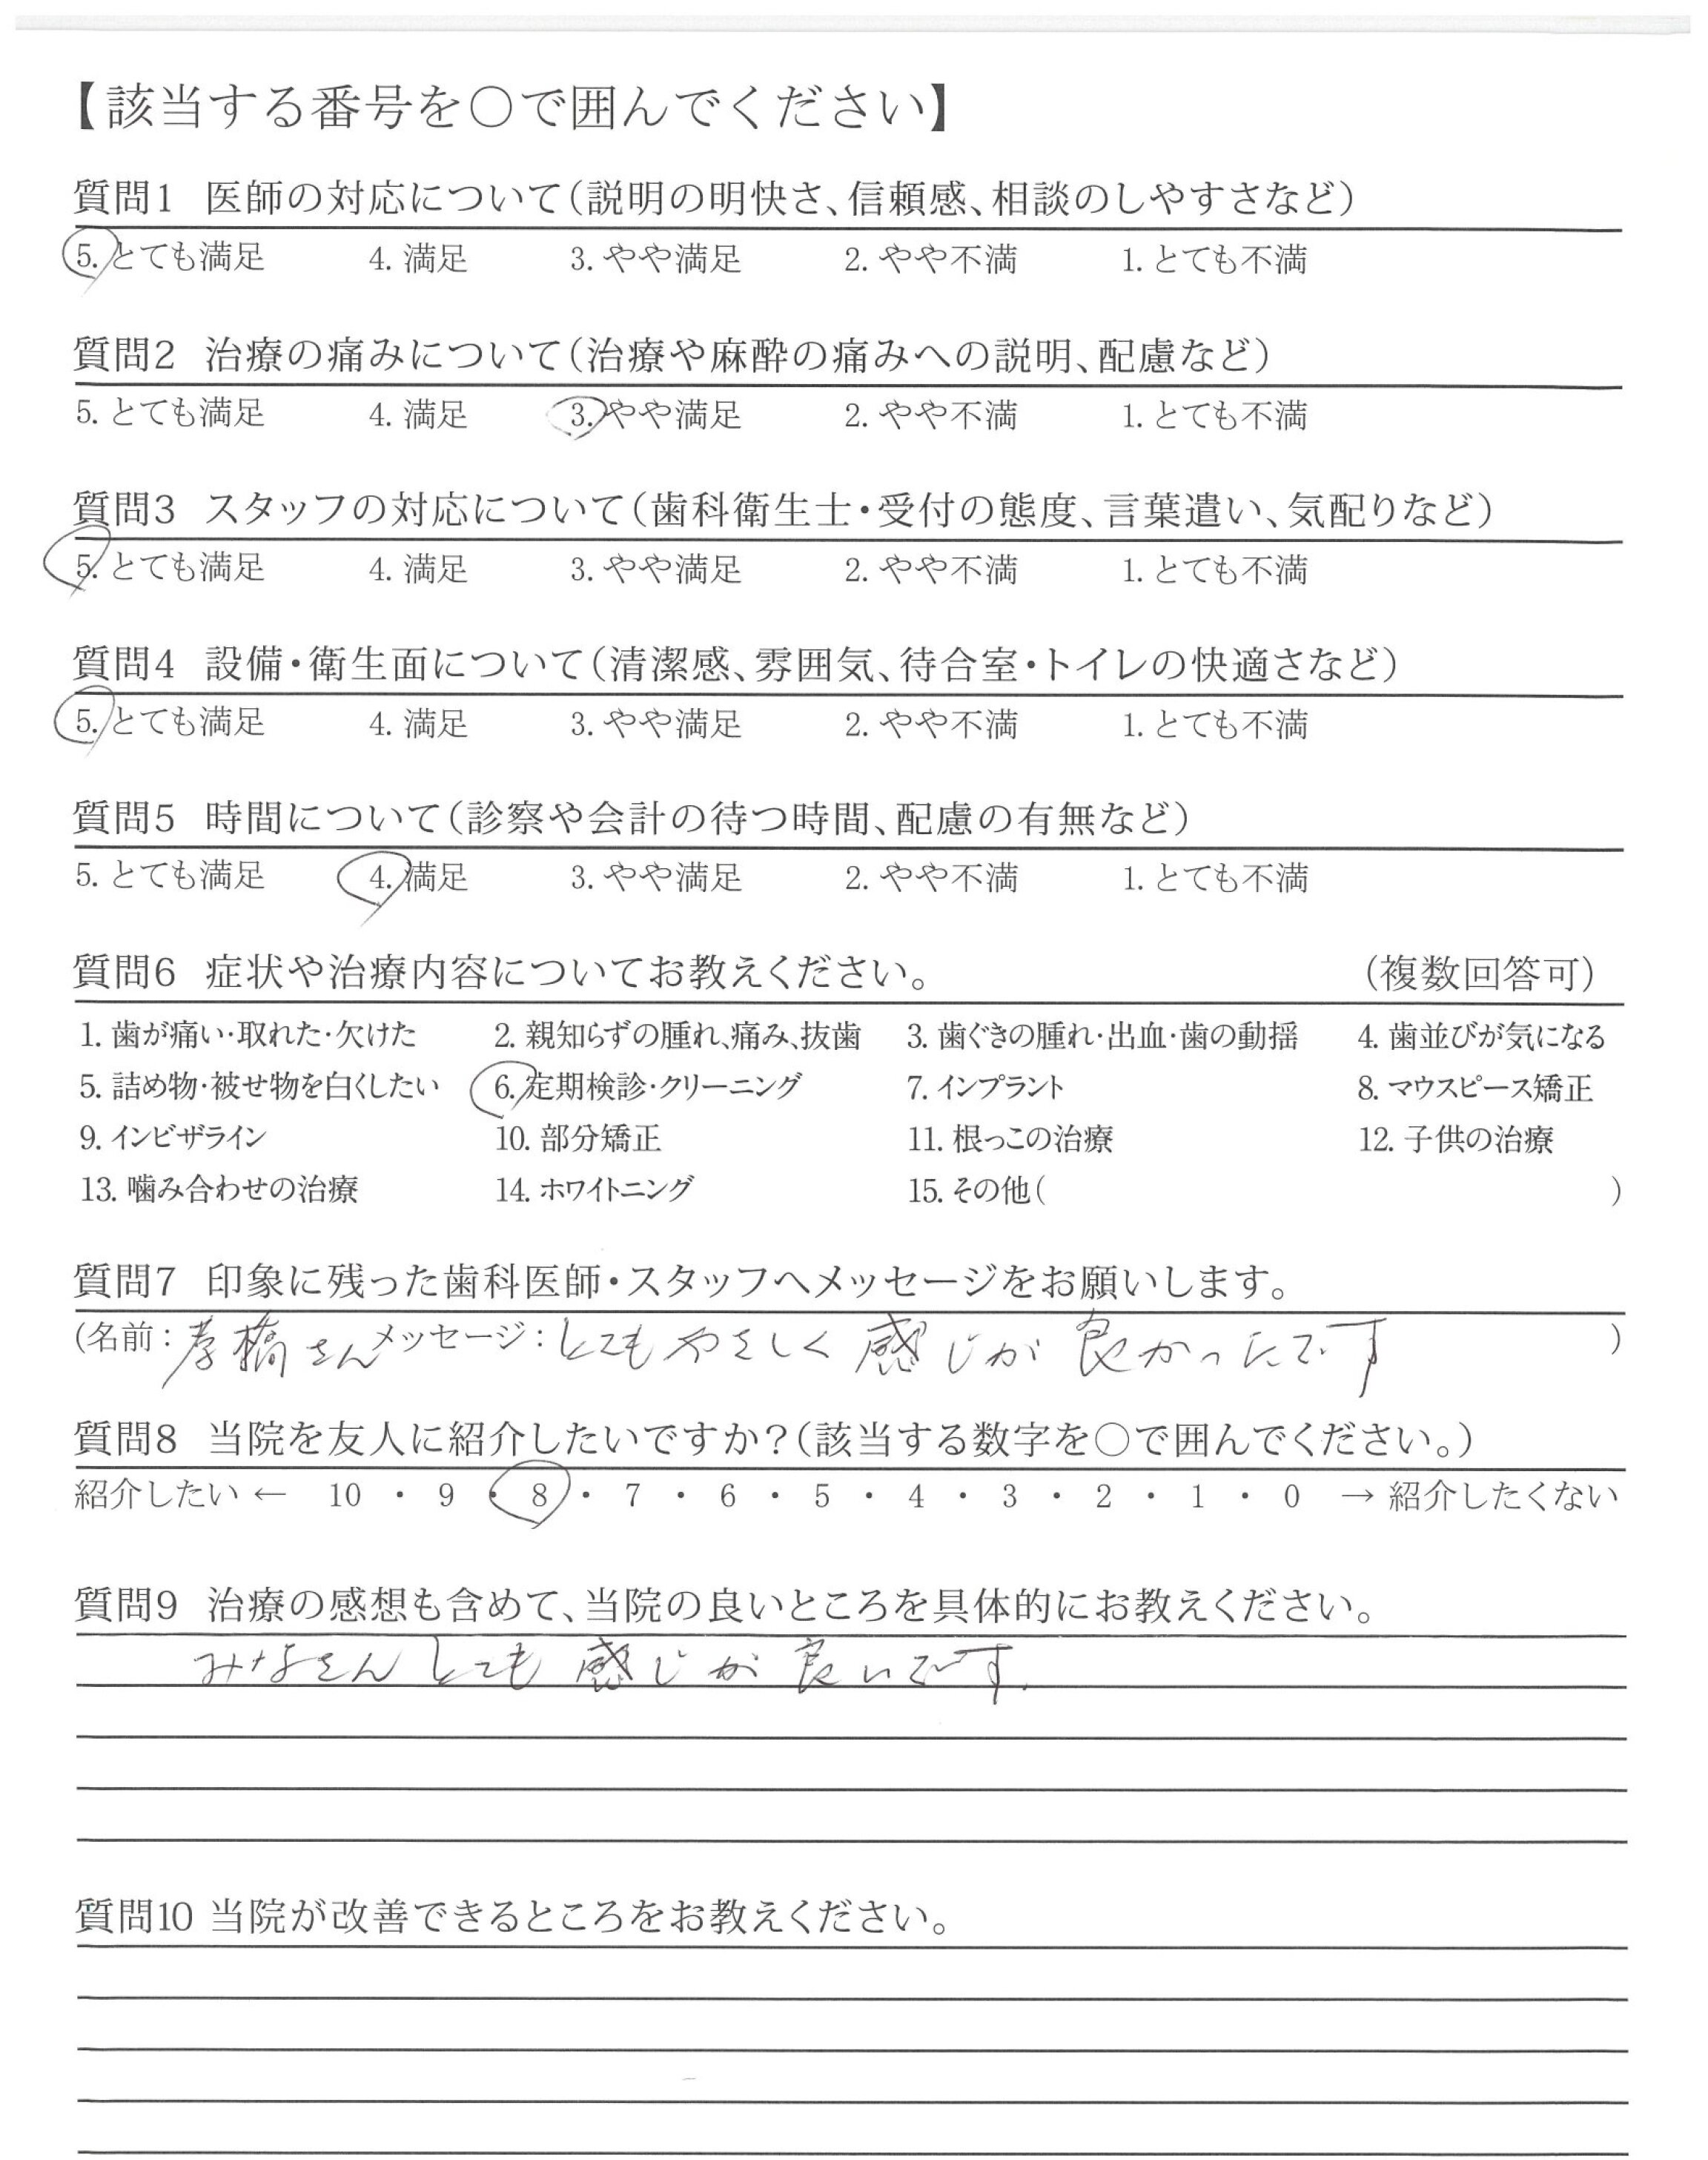 【該当する番号を○で囲んでください】
質問1 医師の対応について(説明の明快さ、信頼感、相談のしやすさなど)
5. とても満足 4. 満足 3. やや満足 2. やや不満 1. とても不満
質問2 治療の痛みについて(治療や麻酔の痛みへの説明、配慮など)
5. とても満足 4. 満足 3. やや満足 2. やや不満 1. とても不満
質問3 スタッフの対応について(歯科衛生士・受付の態度、言葉遣い、気配りなど)
5. とても満足 4. 満足 3. やや満足 2. やや不満 1. とても不満
質問4 設備・衛生面について(清潔感、雰囲気、待合室・トイレの快適さなど)
5. とても満足 4. 満足 3. やや満足 2. やや不満 1. とても不満
質問5 時間について(診察や会計の待つ時間、配慮の有無など)
5. とても満足 4. 満足 3. やや満足 2. やや不満 1. とても不満
質問6 症状や治療内容についてお教えください。 (複数回答可)
1. 歯が痛い・取れた・欠けた 2. 親知らずの腫れ、痛み、抜歯 3. 歯ぐきの腫れ・出血・歯の動揺 4. 歯並びが気になる
5. 詰め物・被せ物を白くしたい 6. 定期検診・クリーニング 7. インプラント 8. マウスピース矯正
9. インビザライン 10. 部分矯正 11. 根っこの治療 12. 子供の治療
13. 噛み合わせの治療 14. ホワイトニング 15. その他( )
質問7 印象に残った歯科医師・スタッフへメッセージをお願いします。
(名前: 橋さん メッセージ: とてもやさしく感じが良かったです )
質問8 当院を友人に紹介したいですか?(該当する数字を○で囲んでください。)
紹介したい ← 10 ・ 9 ・ 8 ・ 7 ・ 6 ・ 5 ・ 4 ・ 3 ・ 2 ・ 1 ・ 0 → 紹介したくない
質問9 治療の感想も含めて、当院の良いところを具体的にお教えください。
みなさんとても感じが良いです.
質問10 当院が改善できるところをお教えください。